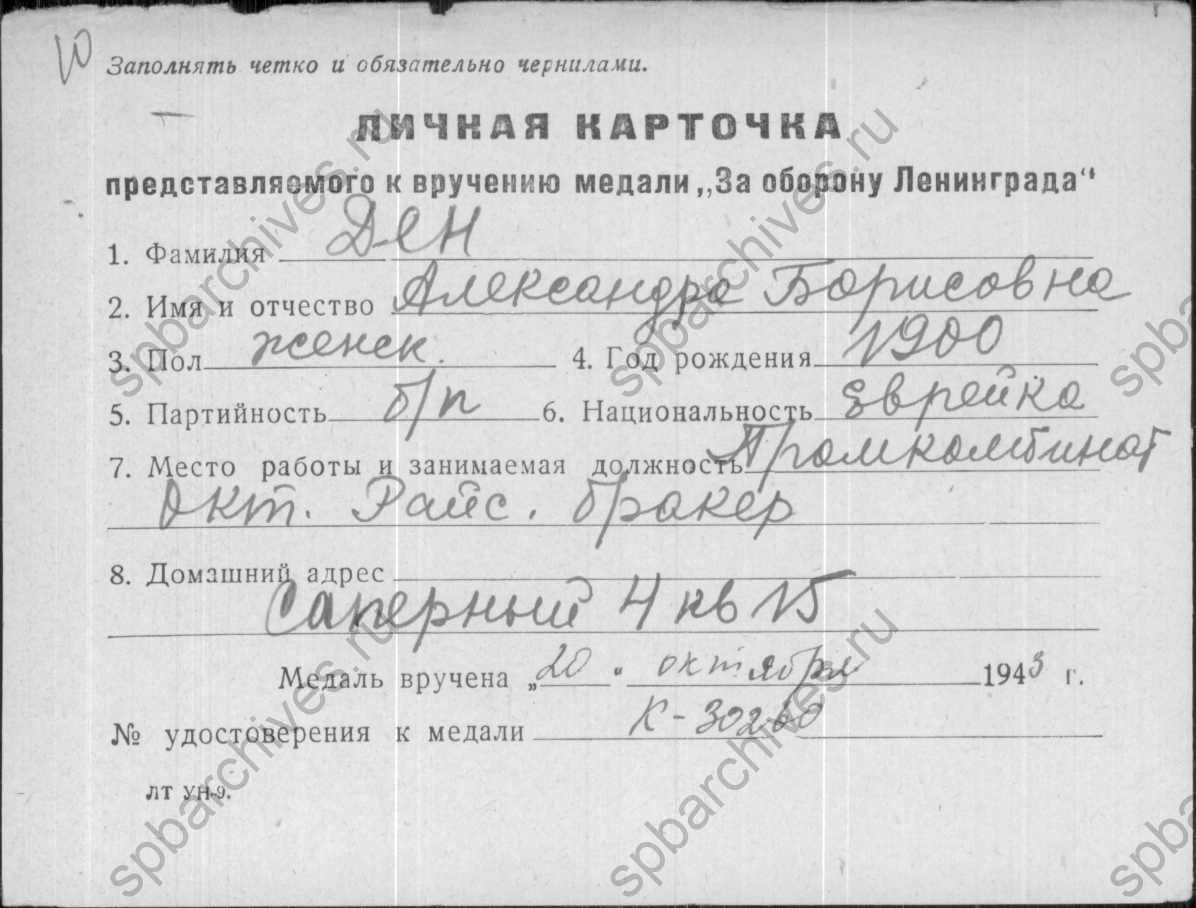 10
Заполнять четко и обязательно чернилами.
ЛИЧНАЯ КАРТОЧКА
представляемого к вручению медали „За оборону Ленинграда“
1. Фамилия Ден
2. Имя и отчество Александра Борисовна
3. Пол женск. 4. Год рождения 1900
5. Партийность б/п 6. Национальность Еврейка
7. Место работы и занимаемая должность Промкомбинат
Окт. Райс. бракер
8. Домашний адрес
Саперный 4 кв 15
Медаль вручена „20“ октября 1943 г.
№ удостоверения к медали К-30260
ЛТ УН-9.
spbarchives.ru
spbarchives.ru
spbarchives.ru
spbarchives.ru